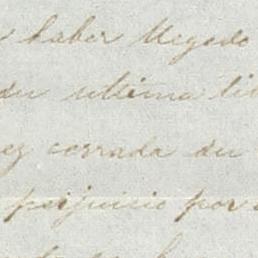 haber llegado
su ultima
ez cerrada su
perjuicio por